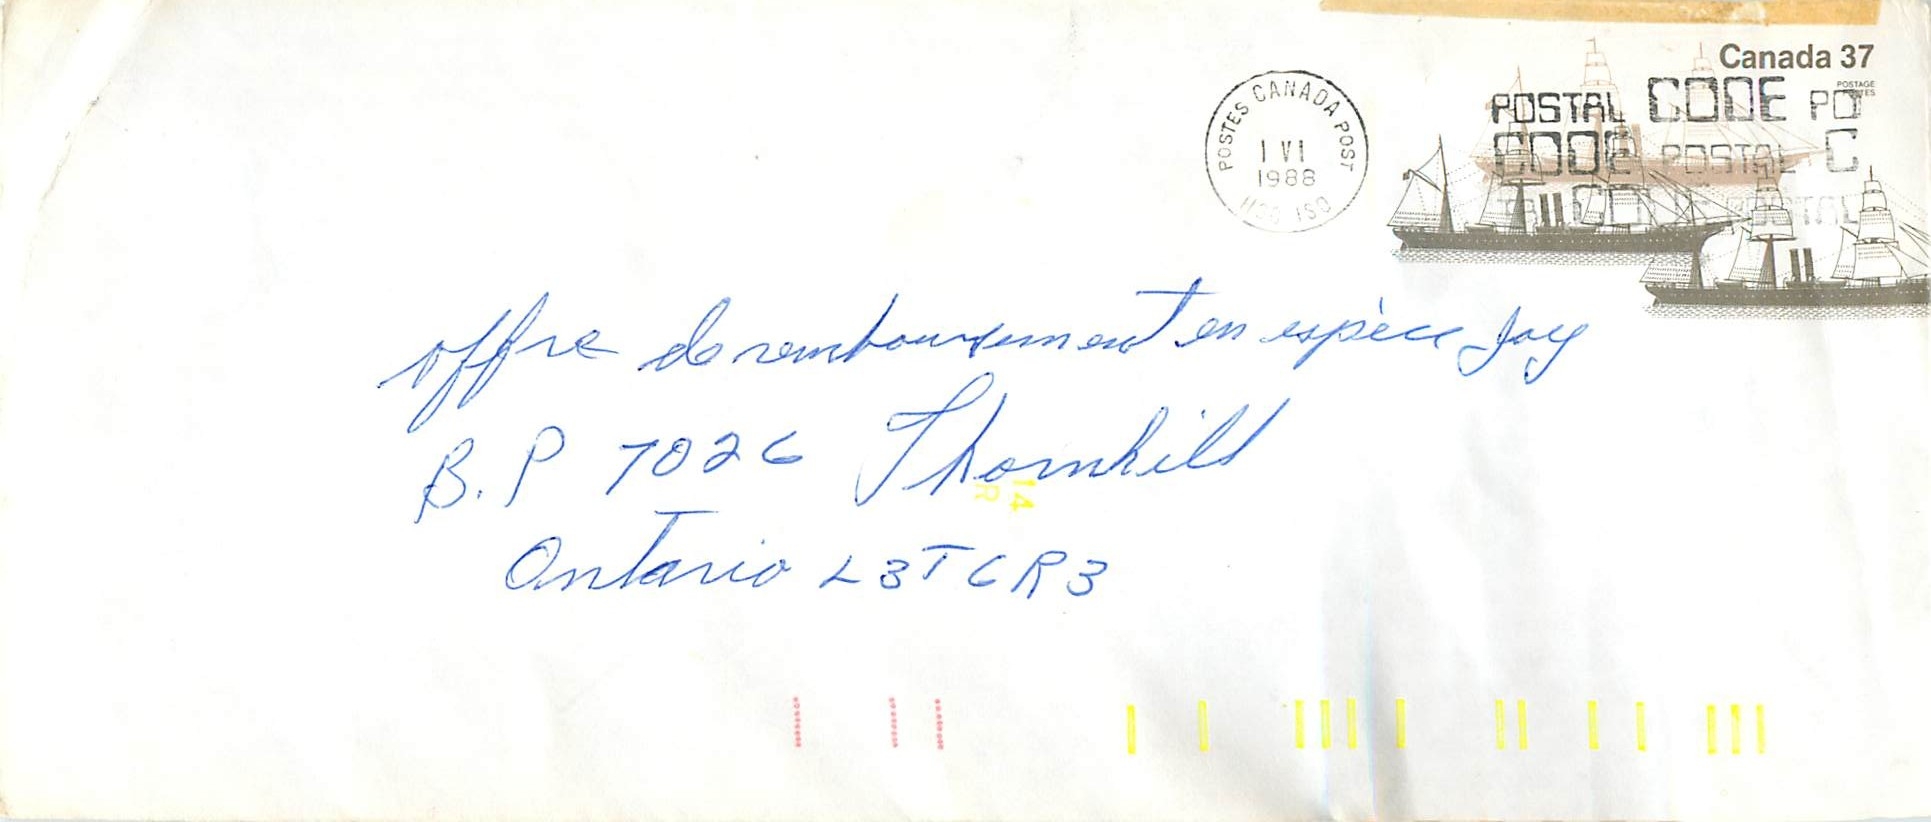 Canada 37
POSTAGE
POSTES CANADA POST
1 VI
1988
POSTAL CODE PO
CODE POSTAL C
POSTAL
offre de remboursement en espèce Joy
B.P 7026 Thornhill
Ontario L3T 6R3
14
R